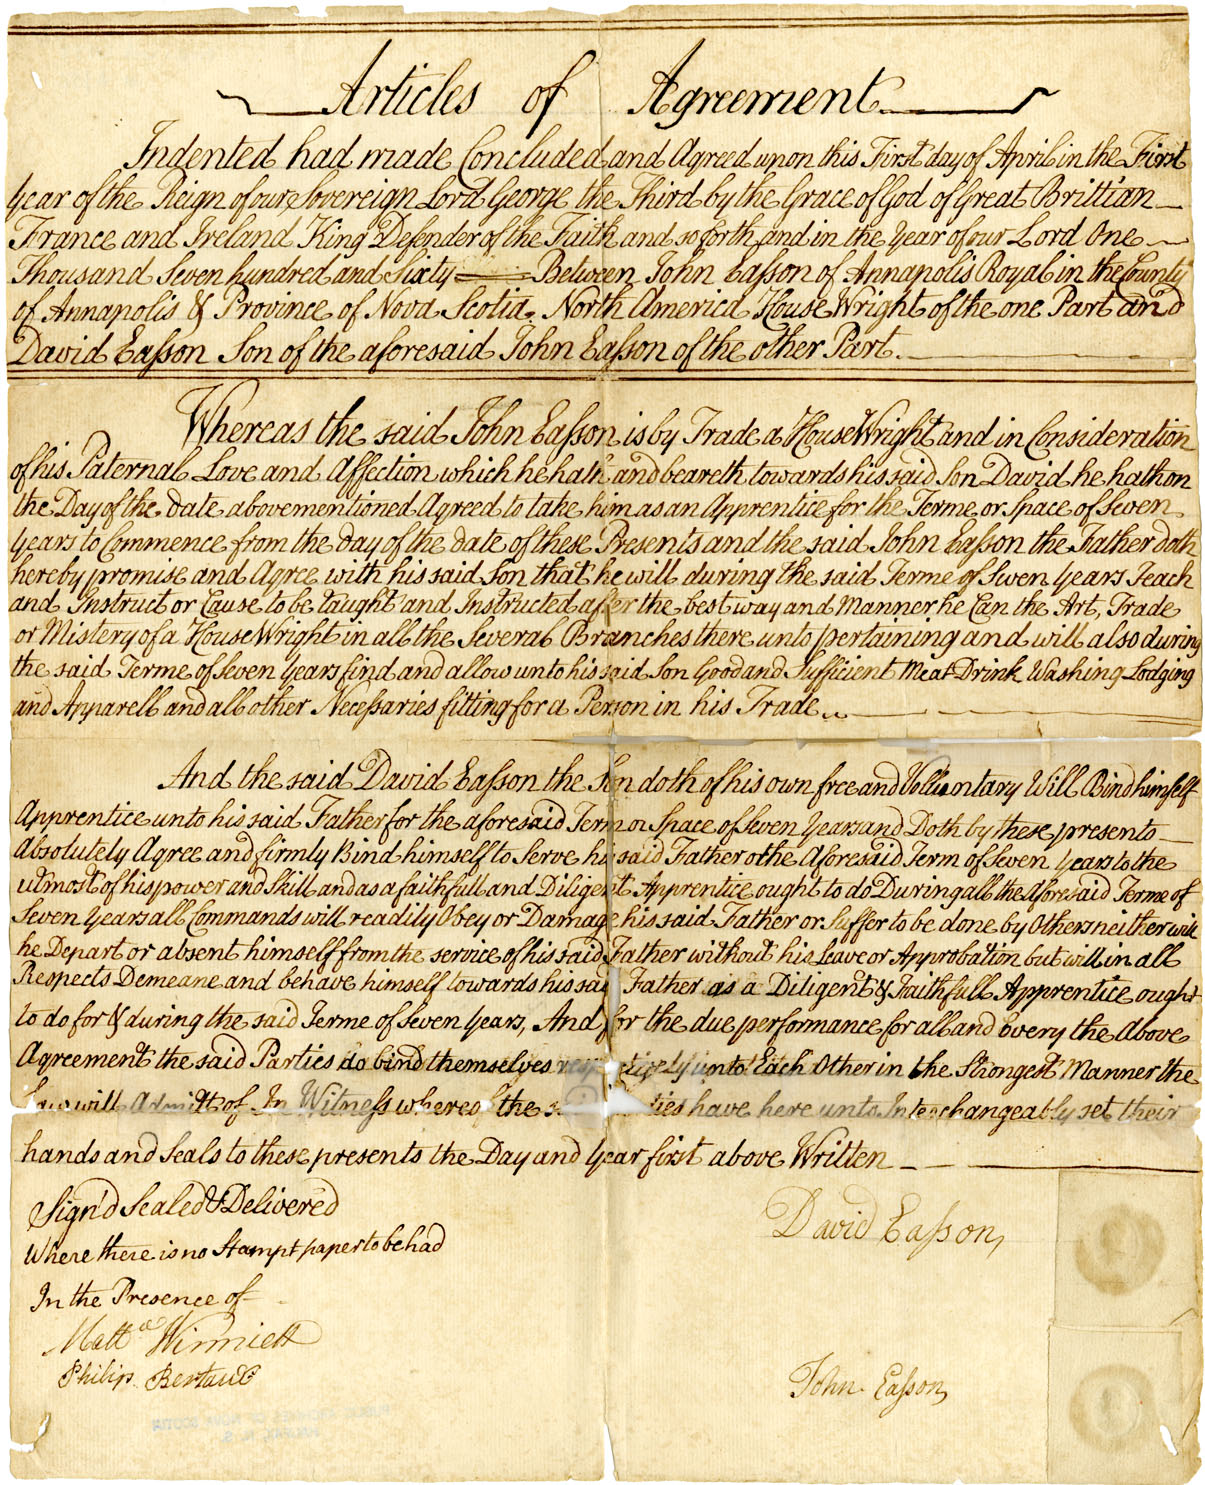 Articles of Agreement
Indented had made Concluded and Agreed upon this First day of April in the First
year of the Reign of our Sovereign Lord George the Third by the Grace of God of Great Brittian
France and Ireland King Defender of the Faith and so forth and in the Year of our Lord One
Thousand Seven hundred and Sixty Between John Eaſson of Annapolis Royal in the County
of Annapolis & Province of Nova Scotia, North America House Wright of the one Part and
David Eaſson Son of the aforesaid John Eaſson of the other Part.
Whereas the said John Eaſson is by Trade a House Wright and in Consideration
of his Paternal Love and Affection which he hath and beareth towards his said Son David he hath on
the Day of the date abovementioned Agreed to take him as an Apprentice for the Terme or Space of Seven
Years to Commence from the day of the date of these Presents and the said John Eaſson the Father doth
hereby promise and Agree with his said Son that he will during the said Terme of Seven Years Teach
and Instruct or Cause to be taught and Instructed after the best way and Manner he Can the Art, Trade
or Mistery of a House Wright in all the Several Branches there unto pertaining and will also during
the said Terme of Seven Years find and allow unto his said Son Good and Sufficient Meat Drink Washing Lodging
and Apparell and all other Neceſsaries fitting for a Person in his Trade
And the said David Eaſson the Son doth of his own free and Volluntary Will Bind himself
Apprentice unto his said Father for the aforesaid Term or Space of Seven Years and Doth by these presents
Absolutely Agree and firmly Bind himself to Serve his said Father the Aforesaid Term of Seven Years to the
utmost of his power and Skill and as a faithfull and Diligent Apprentice ought to do During all the Aforesaid Terme of
Seven Years all Commands will readily Obey or Damage his said Father or Suffer to be done by Others neither will
he Depart or absent himself from the service of his said Father without his Leave or Approbation but will in all
Respects Demeane and behave himself towards his said Father as a Diligent & Faithfull Apprentice ought
to do for & during the said Terme of Seven Years, And for the due performance for all and Every the Above
Agreement the said Parties do bind themselves respectively unto Each Other in the Strongest Manner the
Law will Admitt of In Witneſs whereof the said Parties have here unto Interchangeably set their
hands and Seals to these presents the Day and Year first above Written
Sign'd Sealed & Delivered
Where there is no Stampt paper to be had
In the Presence of
David Eaſson,
Matt Winniett
Philip Bertaud
John Eaſson,
PUBLIC ARCHIVES OF NOVA SCOTIA
HALIFAX, N. S.